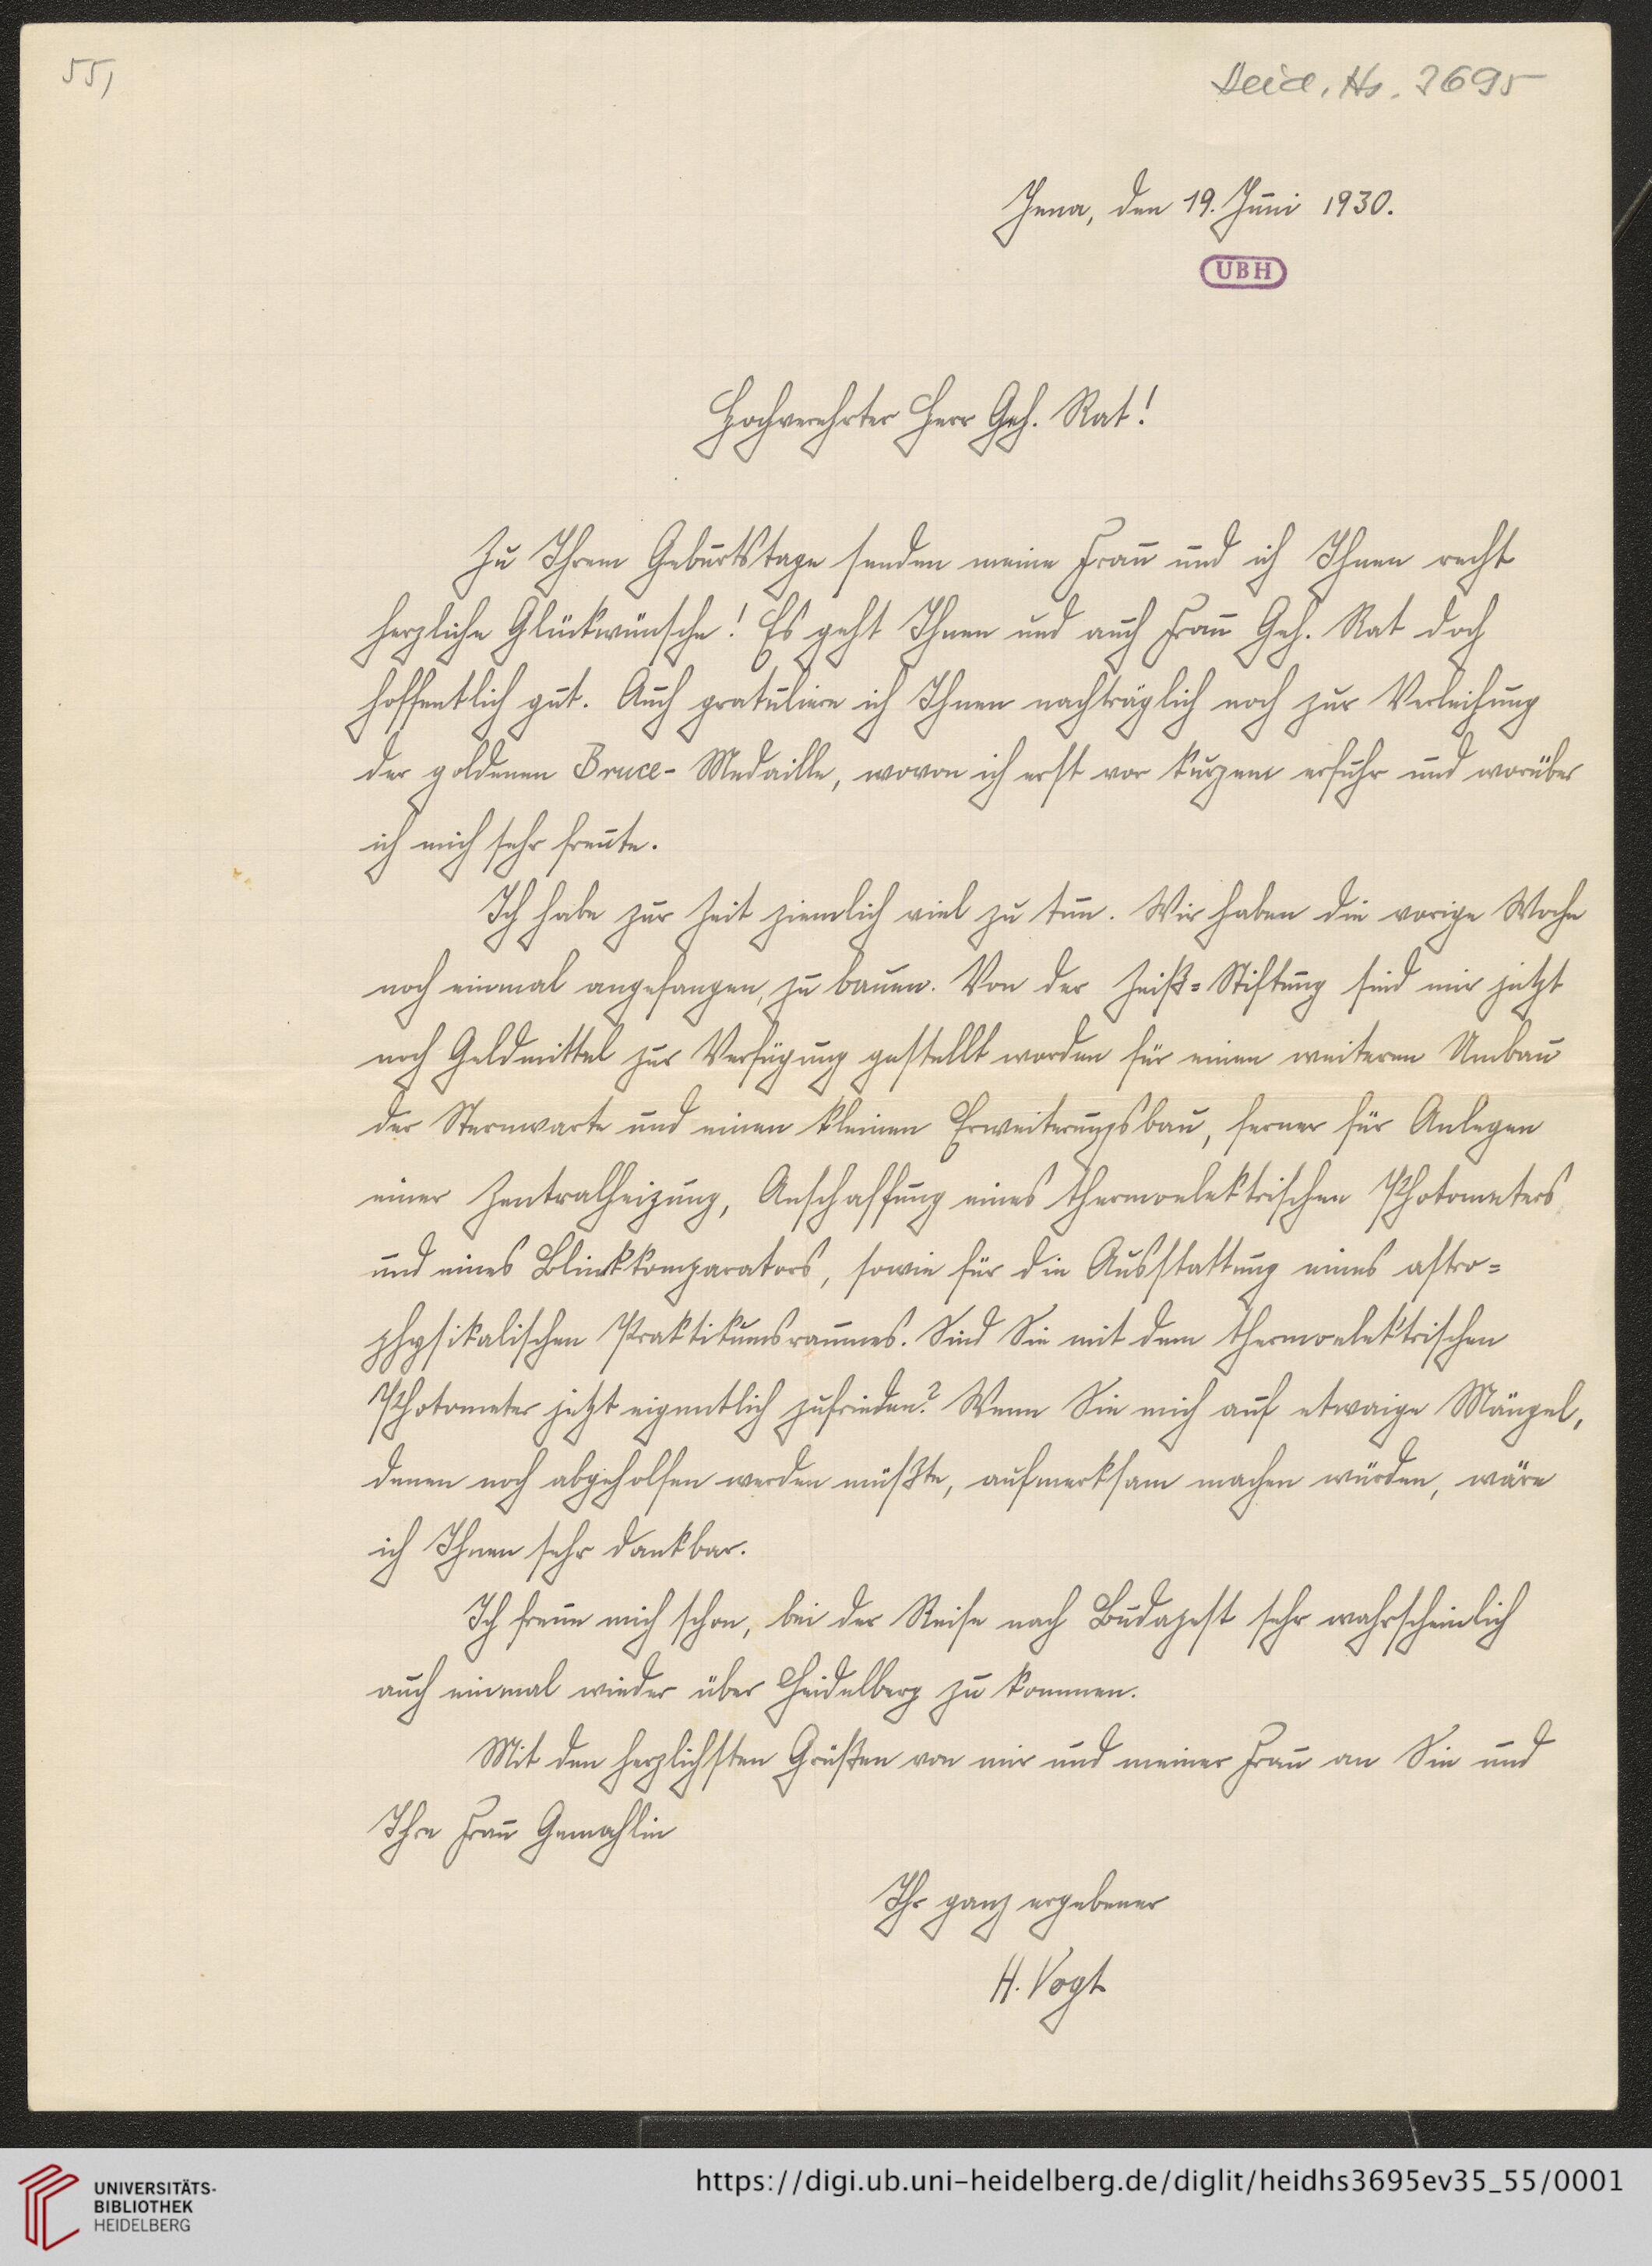 55,
Heid. Hs. 3695
Jena, den 19. Juni 1930.
UBH
Hochverehrter Herr Geh. Rat!
Zu Ihrem Geburtstage senden meine Frau und ich Ihnen recht
herzliche Glückwünsche! Es geht Ihnen und auch Frau Geh. Rat doch
hoffentlich gut. Auch gratuliere ich Ihnen nachträglich noch zur Verleihung
der goldenen Bruce-Medaille, wovon ich erst vor kurzem erfuhr und worüber
ich mich sehr freute.
Ich habe zur Zeit ziemlich viel zu tun. Wir haben die vorige Woche
noch einmal angefangen, zu bauen. Von der Zeiß-Stiftung sind mir jetzt
noch Geldmittel zur Verfügung gestellt worden für einen weiteren Umbau
der Sternwarte und einen kleinen Erweiterungsbau, ferner für Anlegen
einer Zentralheizung, Anschaffung eines thermoelektrischen Photometers
und eines Blinkkomparators, sowie für die Ausstattung eines astro-
physikalischen Praktikumsraumes. Sind Sie mit dem thermoelektrischen
Photometer jetzt eigentlich zufrieden? Wenn Sie mich auf etwaige Mängel,
denen noch abgeholfen werden müßte, aufmerksam machen würden, wäre
ich Ihnen sehr dankbar.
Ich freue mich schon, bei der Reise nach Budapest sehr wahrscheinlich
auch einmal wieder über Heidelberg zu kommen.
Mit den herzlichsten Grüßen von mir und meiner Frau an Sie und
Ihre Frau Gemahlin
Ihr ganz ergebener
H. Vogt
UNIVERSITÄTS-
BIBLIOTHEK
HEIDELBERG
https://digi.ub.uni-heidelberg.de/diglit/heidhs3695ev35_55/0001